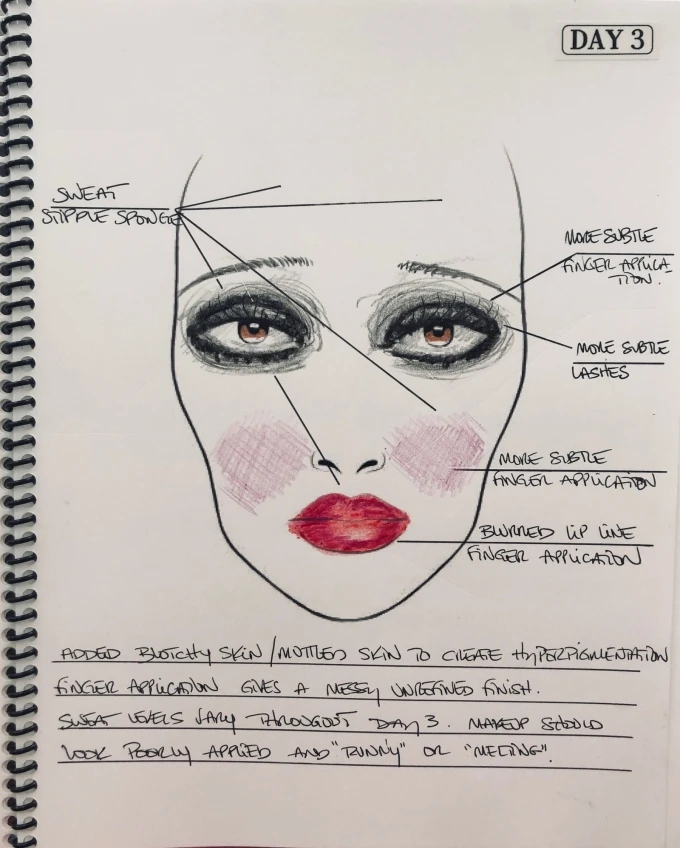 DAY 3
SWEAT
STIPPLE SPONGE
MORE SUBTLE
FINGER APPLICA
TION.
MORE SUBTLE
LASHES
MORE SUBTLE
FINGER APPLICATION
BLURRED LIP LINE
FINGER APPLICATION
ADDED BLOTCHY SKIN / MOTTLED SKIN TO CREATE HYPERPIGMENTATION
FINGER APPLICATION GIVES A MESSY UNREFINED FINISH.
SWEAT LEVELS VARY THROUGOUT DAY 3. MAKEUP SHOULD
LOOK POORLY APPLIED AND "RUNNY" OR "MELTING".